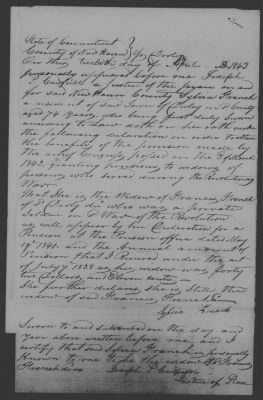 State of Connecticut }
County of New Haven } ss Derby
On this day of April AD 1843
personally appeared before me Joseph
P. a Justice of the peace in and
for said New Haven County Sylvia French
a resident of said Town of Derby in County
aged 74 years, who being first duly sworn
according to Law doth on her oath make
the following declaration in order to obtain
the benefits of the provision made by
the act of Congress passed on the 3d March
1843, granting pensions to widows of
persons who served during the Revolutionary
War
That She is the Widow of Francis French
of Sd Derby who was a private
Soldier in Sd War of the Revolution
as will appear by her Declaration for a
Pension at the Pension office dated May
19th 1841 and the Annual amount of
Pension that I Received under the act
of July 7 1838 as his widow was forty
Dollars and Eleven cents
She further declares she is still the
widow of said Francis French
Sylvia French
Sworn to and subscribed on the day and
year above written before me, and I
certify that said Sylvia French is personally
known to me to be the widow of Francis
French
Joseph P.
Justice of Peace